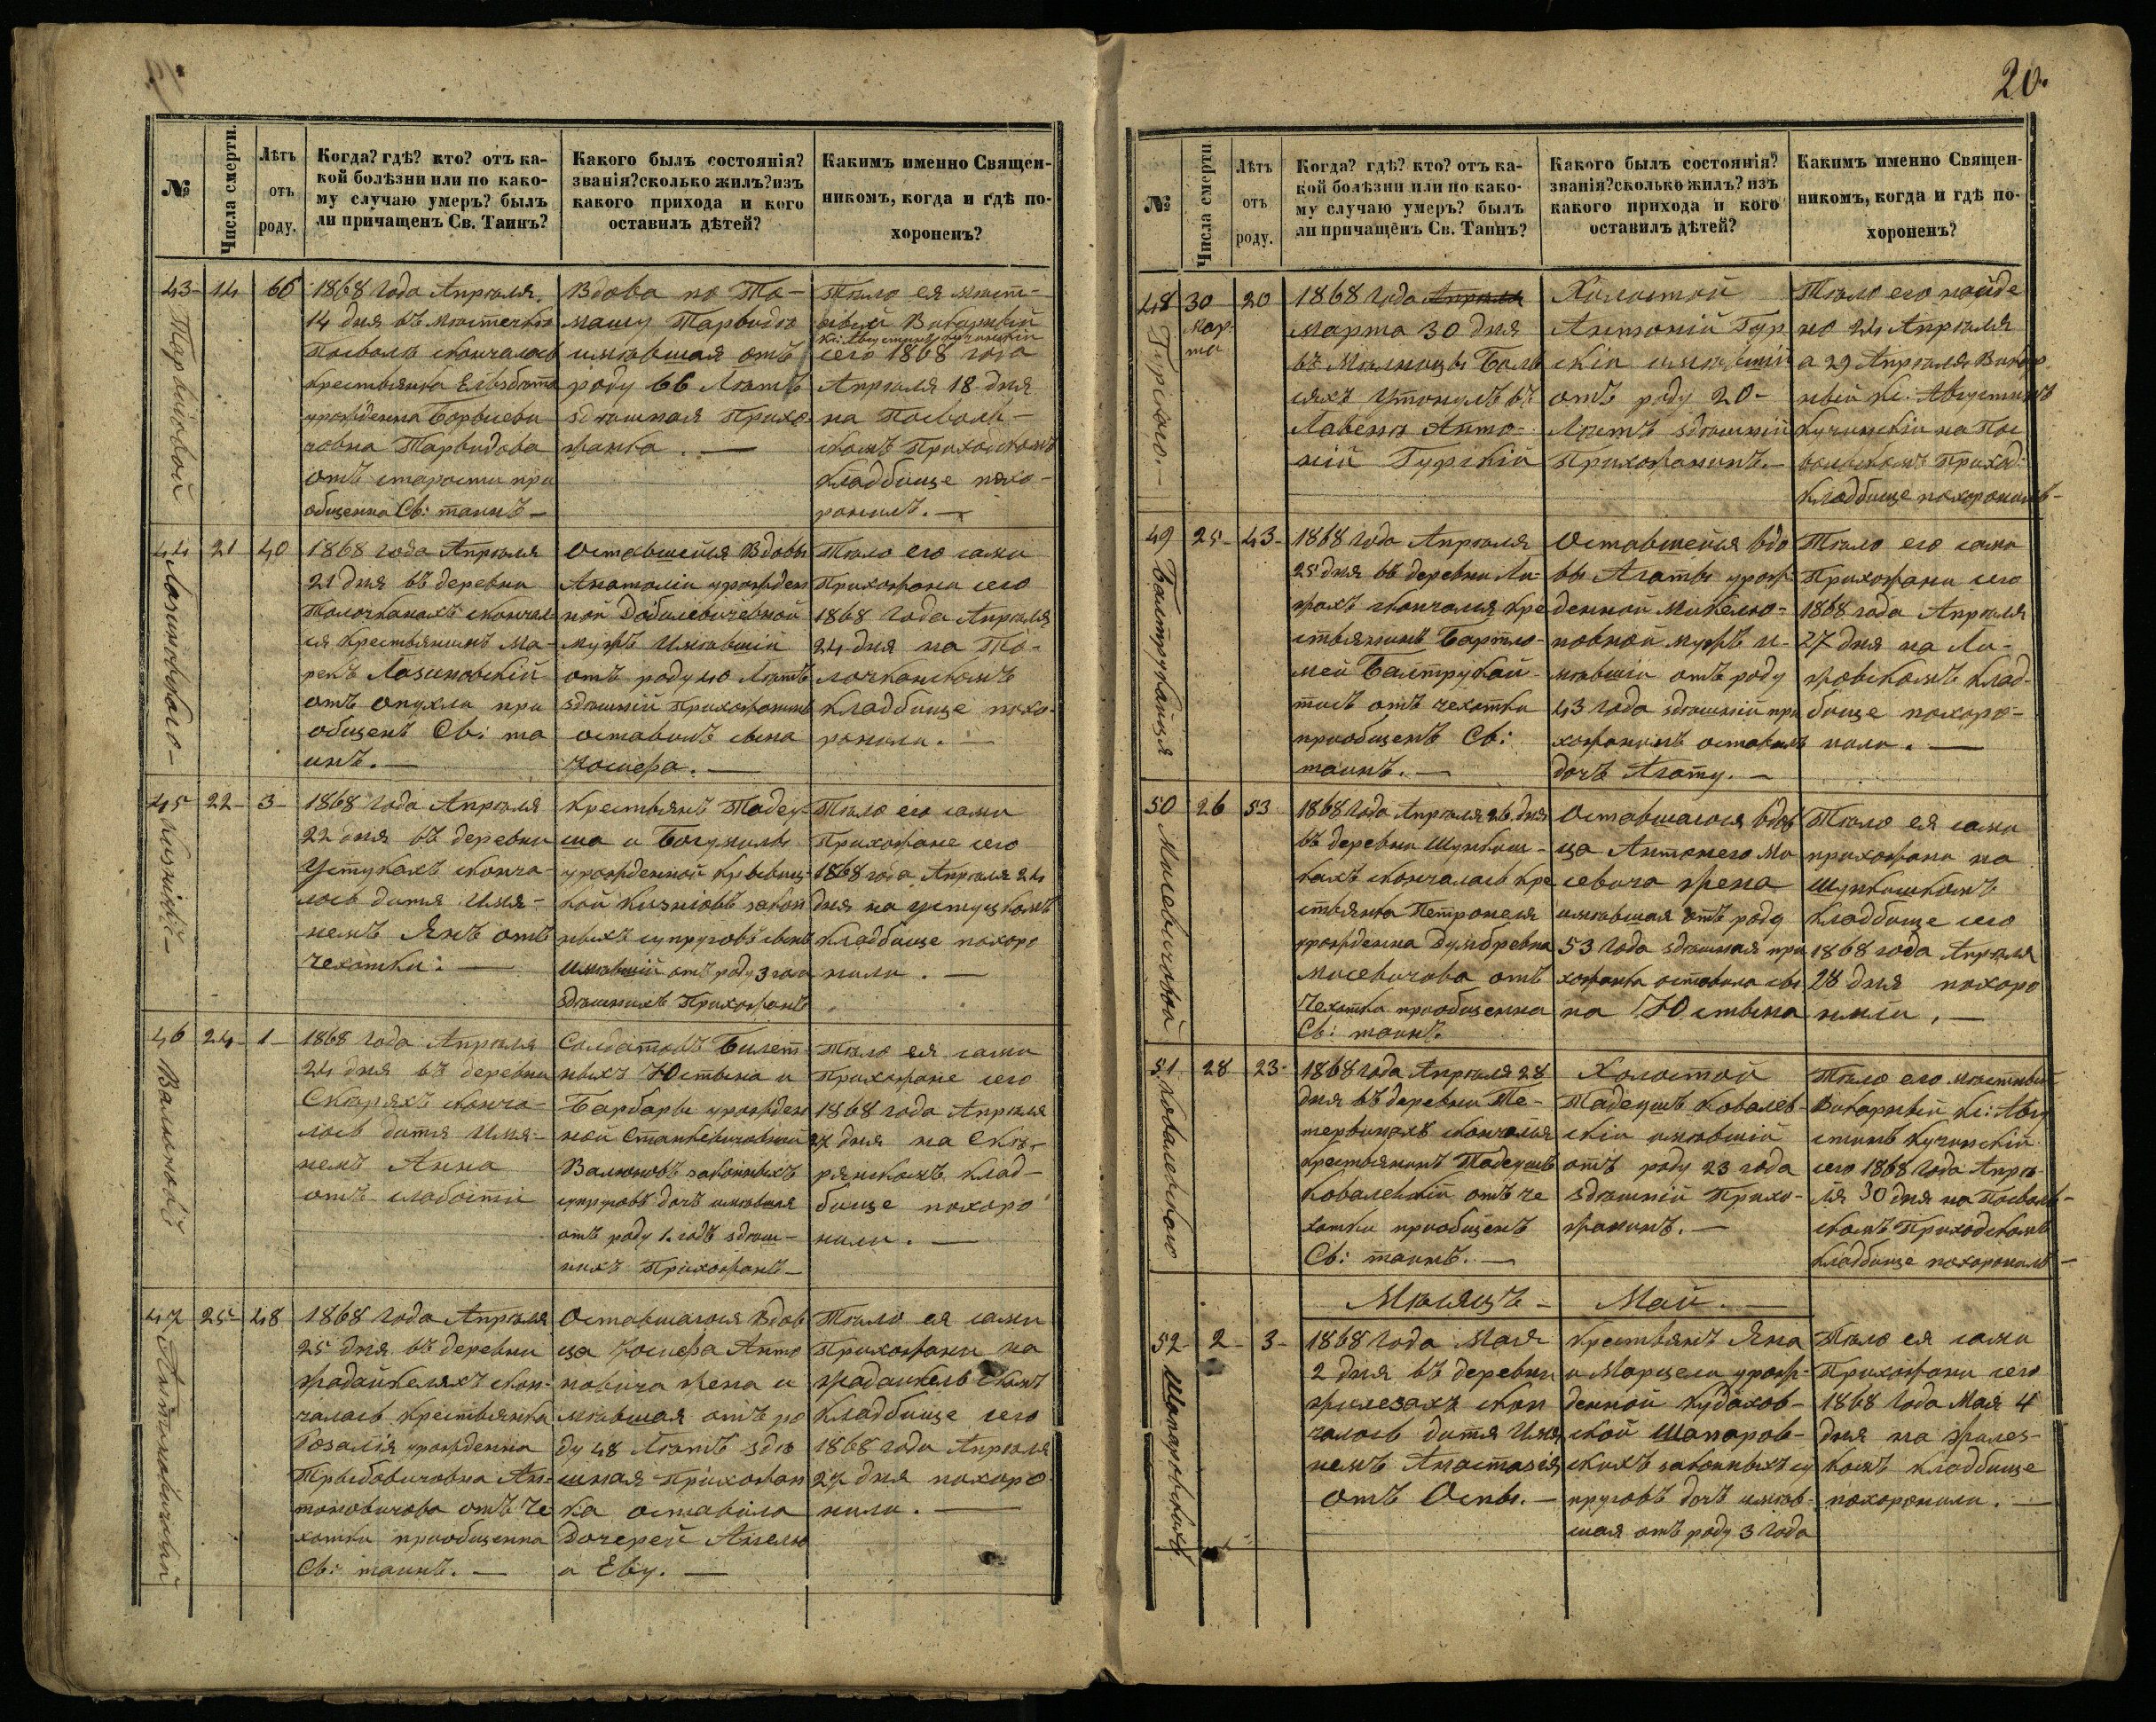 №
Числа смерти.
Лѣтъ
отъ
роду.
Когда? гдѣ? кто? отъ ка-
кой болѣзни или по како-
му случаю умеръ? былъ
ли причащенъ Св. Таинъ?
Какого былъ состоянія?
званія? сколько жилъ? изъ
какого прихода и кого
оставилъ дѣтей?
Какимъ именно Священ-
никомъ, когда и гдѣ по-
хороненъ?
43-
14
66
1868 года Апрѣля.
14 дня въ мѣстечкѣ
Посволь скончалась
крестьянка Елизабета
урожденна
човна Тарвидова
отъ старости при
общенна Св: таинъ —
Вдова по То-
машу Тарвидѣ
имѣвшая отъ
роду 66 Лѣтъ
здѣшная Прихо
жанка. —
Тѣло ея мѣст-
ный Викарный
Кс: Августинъ Кучинскій
сего 1868 года
Апрѣля 18 дня
на Посволь-
скомъ Приходскомъ
кладбище похо-
ронилъ. —
44
21
40
Лозиновскаго —
1868 года Апрѣля
21 дня въ деревни
Толочканахъ скончал
ся крестьянинъ Ма-
рекъ Лозиновскій
отъ опухли при
общенъ Св: та
инъ. —
Оставшейся Вдовы
Анатоліи урожден
ной Довилевичевной
мужъ Имѣвшій
отъ роду 40 Лѣтъ
здѣшній прихожанинъ
оставилъ сына
Іосифа. —
Тѣло его сами
Прихожани сего
1868 года Апрѣля
24 дня на То-
лочканскомъ
кладбище похо-
ронили. —
45
22-
3-
1868 года Апрѣля
22 дня въ деревни
Устукахъ сконча-
лось дитя Имя-
немъ Янъ отъ
чехотки: —
крестьянъ Тадеу-
ша и Богумилы
урожденной
кой законн
ныхъ супруговъ сынъ
Имѣвшій отъ роду 3 года
здѣшнихъ Прихожанъ
Тѣло его сами
Прихожане сего
1868 года Апрѣля 24
дня на Устуцкомъ
кладбище похоро
нили. —
46
24-
1-
1868 года Апрѣля
24 дня въ деревни
Скѣряхъ сконча-
лось дитя Имя-
немъ Анна
отъ слабости
Солдатовъ Билет-
ныхъ Юстына и
Барбары урожден
ной Станкевичовной
Валюновъ законныхъ
супруговъ дочь имѣвшая
отъ роду 1. годъ здѣш-
нихъ Прихожанъ —
Тѣло ея сами
Прихожане сего
1868 года Апрѣля
27 дня на Скѣ-
рянскомъ клад-
бище похоро
нили. —
47
25
48
Антоновичевой
1868 года Апрѣля
25 дня въ деревни
жадайкеляхъ скон-
чалась крестьянка
Розалія урожденна
Трыбовичовна Ан-
тоновичова отъ че
хотки приобщенна
Св: таинъ. —
Оставшагося Вдов
ца Іосифа Анто
новича жена и
мѣвшая отъ ро
ду 48 Лѣтъ здѣ
шная Прихожан
ка оставила
Дочерей Анелю
и Еву. —
Тѣло ея сами
Прихожани на
жадайкельскомъ
кладбище сего
1868 года Апрѣля
27 дня похоро-
нили. —
20.
№
Числа смерти
Лѣтъ
отъ
роду.
Когда? гдѣ? кто? отъ ка-
кой болѣзни или по како-
му случаю умеръ? былъ
ли причащенъ Св. Таинъ?
Какого былъ состоянія?
званія? сколько жилъ? изъ
какого прихода и кого
оставилъ дѣтей?
Какимъ именно Священ-
никомъ, когда и гдѣ по-
хороненъ?
48
30
Мар-
та
20
Гурскаго. —
1868 года Апрѣля
марта 30 дня
въ Мѣльницы
сяхъ Утонулъ въ
Лавенѣ Анто-
ній Гурскій
Холостой
Антоній Гур
скій имѣвшій
отъ роду 20-
Лѣтъ здѣшній
Прихожанинъ. —
Тѣло его найде
но 24 Апрѣля
а 29 Апрѣля Викар
ный Кс. Августинъ
Кучинскій на Пос
вольскомъ Приход.
кладбище похоронилъ —
49
25-
43-
Балтрукайтся
1868 года Апрѣля
25 дня въ деревни Ли-
жахъ скончался кре
стьянинъ Бартло-
мей Балтрукай-
тисъ отъ чехотки
приобщенъ Св:
таинъ. —
Оставшейся вдо
вы Агаты урож-
денной Микелю-
новной мужъ и-
мѣвшій отъ роду
43 года здѣшній при
хожанинъ оставилъ
дочь Агату. —
Тѣло его сами
Прихожани сего
1868 года Апрѣля
27 дня на Ли-
жовскомъ клад-
бище похоро-
нили. —
50
26
53
Мисевичовой
1868 года Апрѣля 26 дня
въ деревни Шункиш-
кахъ скончалась кре
стьянка Петронеля
урожденна Думбревна
Мисевичова отъ
Чехотки приобщенна
Св: таинъ.
Оставшагося вдов
ца Антонего Ми
севича жена
имѣвшая отъ роду
53 года здѣшная при
хожанка оставила сы
на Юстына
Тѣло ея сами
прихожани на
Шункишкомъ
кладбище сего
1868 года Апрѣля
28 дня похоро
нили. —
51
28
23-
Ковалевскаго
1868 года Апрѣля 28
дня въ деревни Те-
тервинахъ скончался
крестьянинъ Тадеушъ
Ковалевскій отъ че
хотки приобщенъ
Св: таинъ. —
Холостой
Тадеушъ Ковалев-
скій имѣвшій
отъ роду 23 года
здѣшній Прихо-
жанинъ. —
Тѣло его мѣстный
Викарный Кс: Авгу
стинъ Кучинскій
сего 1868 года Апрѣ-
ля 30 дня на Посволь-
скомъ Приходскомъ
кладбище похоронилъ —
Мѣсяцъ — Май. —
52-
2-
3-
1868 года Мая
2 дня въ деревни
жилезахъ скон
чалось дитя Имя
немъ Анастазія
отъ Оспы. —
крестьянъ Яна
и Марцели урож-
денной Кудаков-
ской Шапаров-
скихъ законныхъ су
пруговъ дочь имѣв-
шая отъ роду 3 года
Тѣло ея сами
Прихожани сего
1868 года Мая 4
дня на жилез-
комъ кладбище
похоронили. —